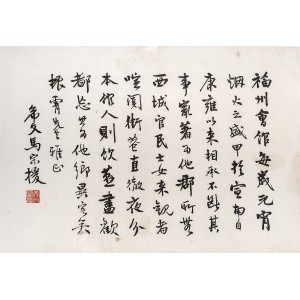 福州會館每歲元宵
煙火之盛甲於宣南自
康雍以來相承不斷其
事嚴著為他郡所無
西城官民士女來觀者
喧闐衢巷直徹夜分
本館人則飲酒盡歡
都忘其他鄉異客矣
振霄 雅正
馬宗